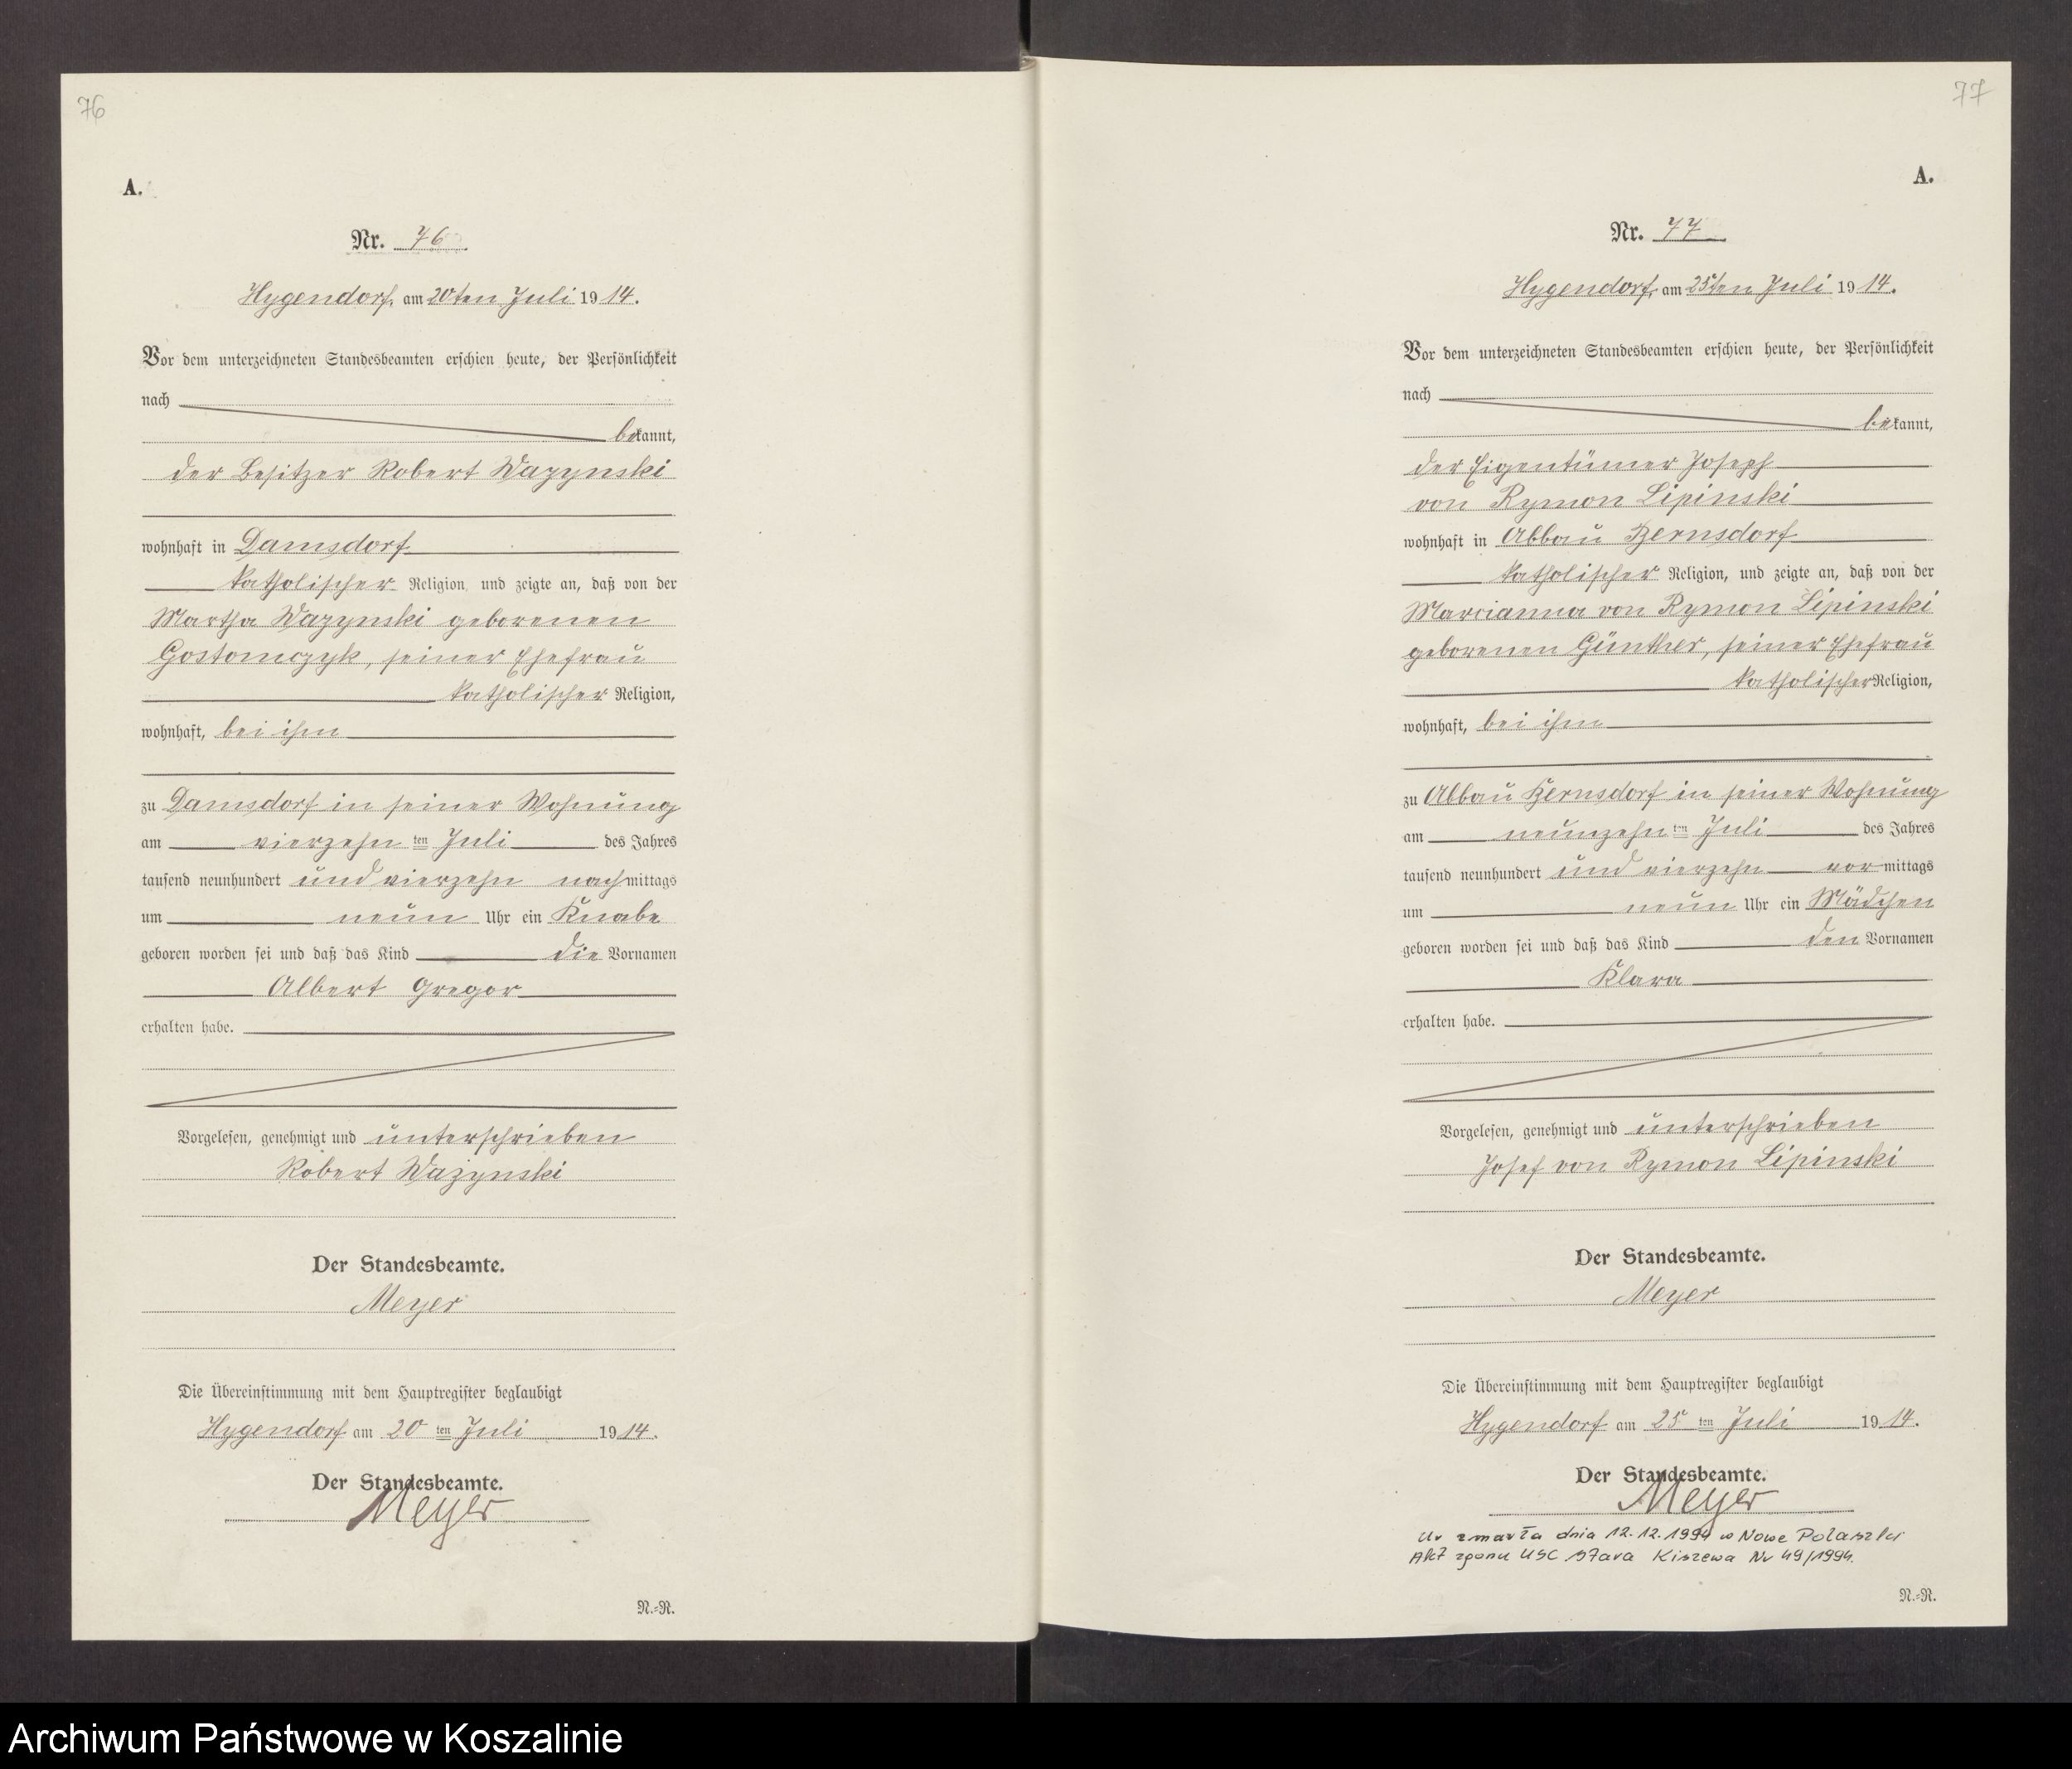 76
A.
Nr. 76
Hygendorf, am 20ten Juli 1914.
Vor dem unterzeichneten Standesbeamten erschien heute, der Persönlichkeit
nach
bekannt,
der Besitzer Robert Wazynski
wohnhaft in Damsdorf
katholischer Religion, und zeigte an, daß von der
Martha Wazynski geborenen
Gostomczyk, seiner Ehefrau
katholischer Religion,
wohnhaft, bei ihm
zu Damsdorf in seiner Wohnung
am vierzehn ten Juli des Jahres
tausend neunhundert und vierzehn nachmittags
um neun Uhr ein Knabe
geboren worden sei und daß das Kind die Vornamen
Albert Gregor
erhalten habe.
Vorgelesen, genehmigt und unterschrieben
Robert Ważynski
Der Standesbeamte.
Meyer
Die Übereinstimmung mit dem Hauptregister beglaubigt
Hygendorf am 20 ten Juli 1914.
Der Standesbeamte.
Meyer
N.-R.
77
A.
Nr. 77
Hygendorf, am 25ten Juli 1914.
Vor dem unterzeichneten Standesbeamten erschien heute, der Persönlichkeit
nach
bekannt,
der Eigentümer Joseph
von Rymon Lipinski
wohnhaft in Abbau Bernsdorf
katholischer Religion, und zeigte an, daß von der
Marcianna von Rymon Lipinski
geborenen Günther, seiner Ehefrau
katholischer Religion,
wohnhaft, bei ihm
zu Abbau Bernsdorf in seiner Wohnung
am neunzehn ten Juli des Jahres
tausend neunhundert und vierzehn vormittags
um neun Uhr ein Mädchen
geboren worden sei und daß das Kind den Vornamen
Klara
erhalten habe.
Vorgelesen, genehmigt und unterschrieben
Josef von Rymon Lipinski
Der Standesbeamte.
Meyer
Die Übereinstimmung mit dem Hauptregister beglaubigt
Hygendorf am 25 ten Juli 1914.
Der Standesbeamte.
Meyer
Ur zmarła dnia 12.12.1994 w Nowe Polaszki
Akt zgonu USC Stara Kiszewa Nr 49/1994.
N.-R.
Archiwum Państwowe w Koszalinie